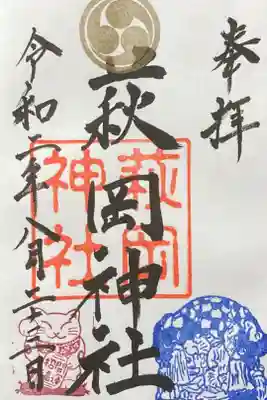 奉拝
萩岡神社
令和二年八月二十三日
萩岡
神社